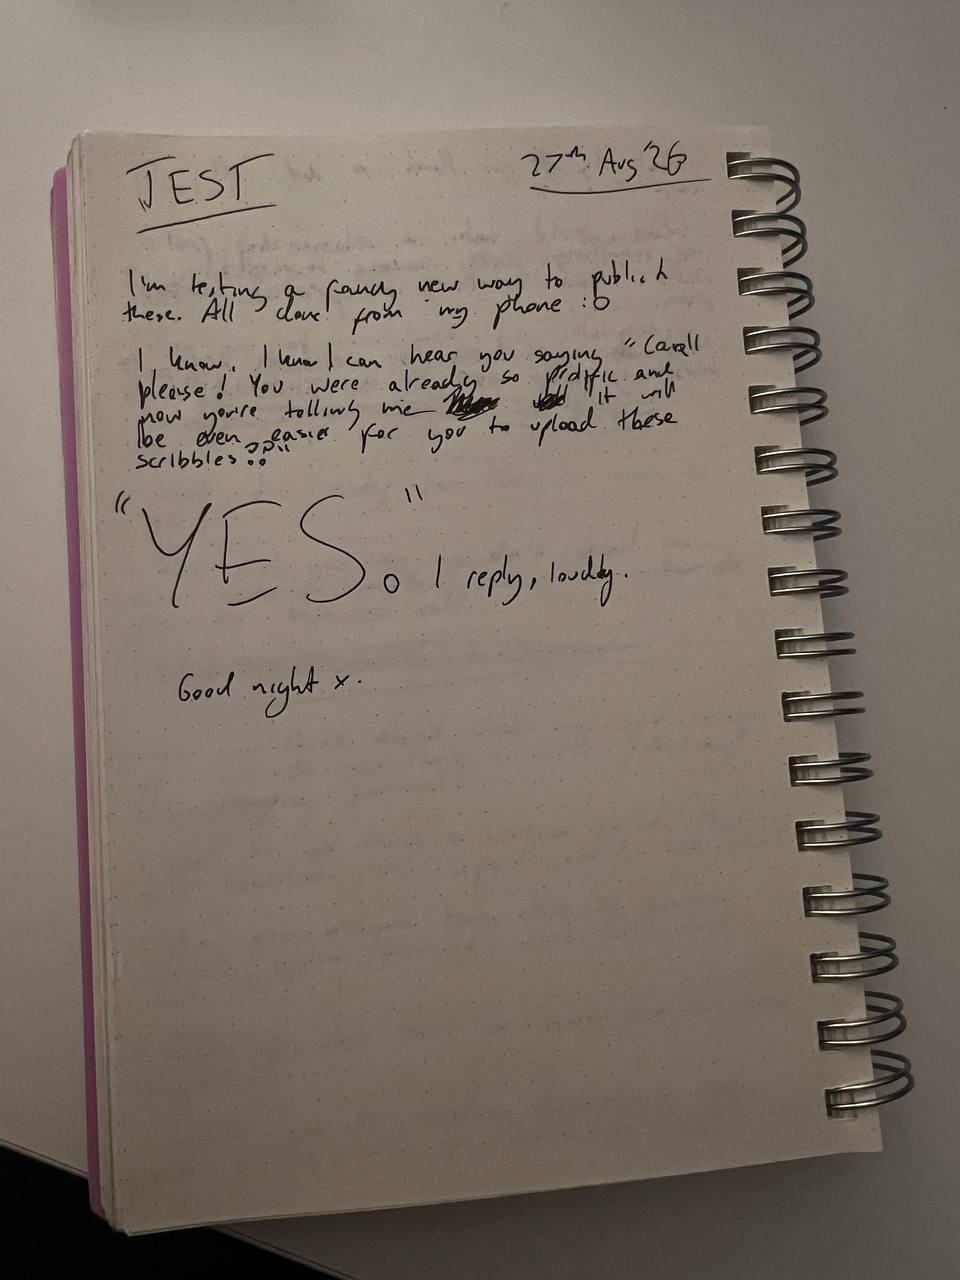 TEST
27th Aug '26
I'm testing a fancy new way to publish
these. All done from my phone :O
I know, I know I can hear you saying "Caroll
please! You were already so prolific and
now you're telling me it will
be even easier for you to upload these
scribbles??"
"YES." I reply, loudly.
Good night x.